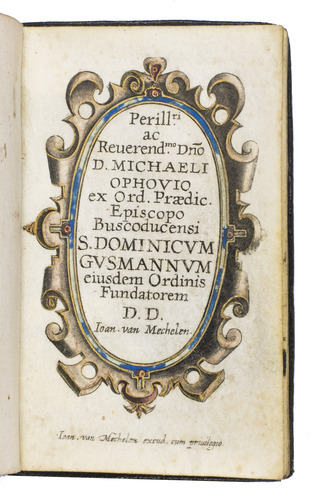 Perillri
ac
Reuerendmo Dño
D. MICHAELI
OPHOVIO
ex Ord. Prædic.
Episcopo
Buscoducensi
S. DOMINICVM
GVSMANNVM
eiusdem Ordinis
Fundatorem
D. D.
Ioan. van Mechelen.
Ioan. van Mechelen excud. cum priuilegio